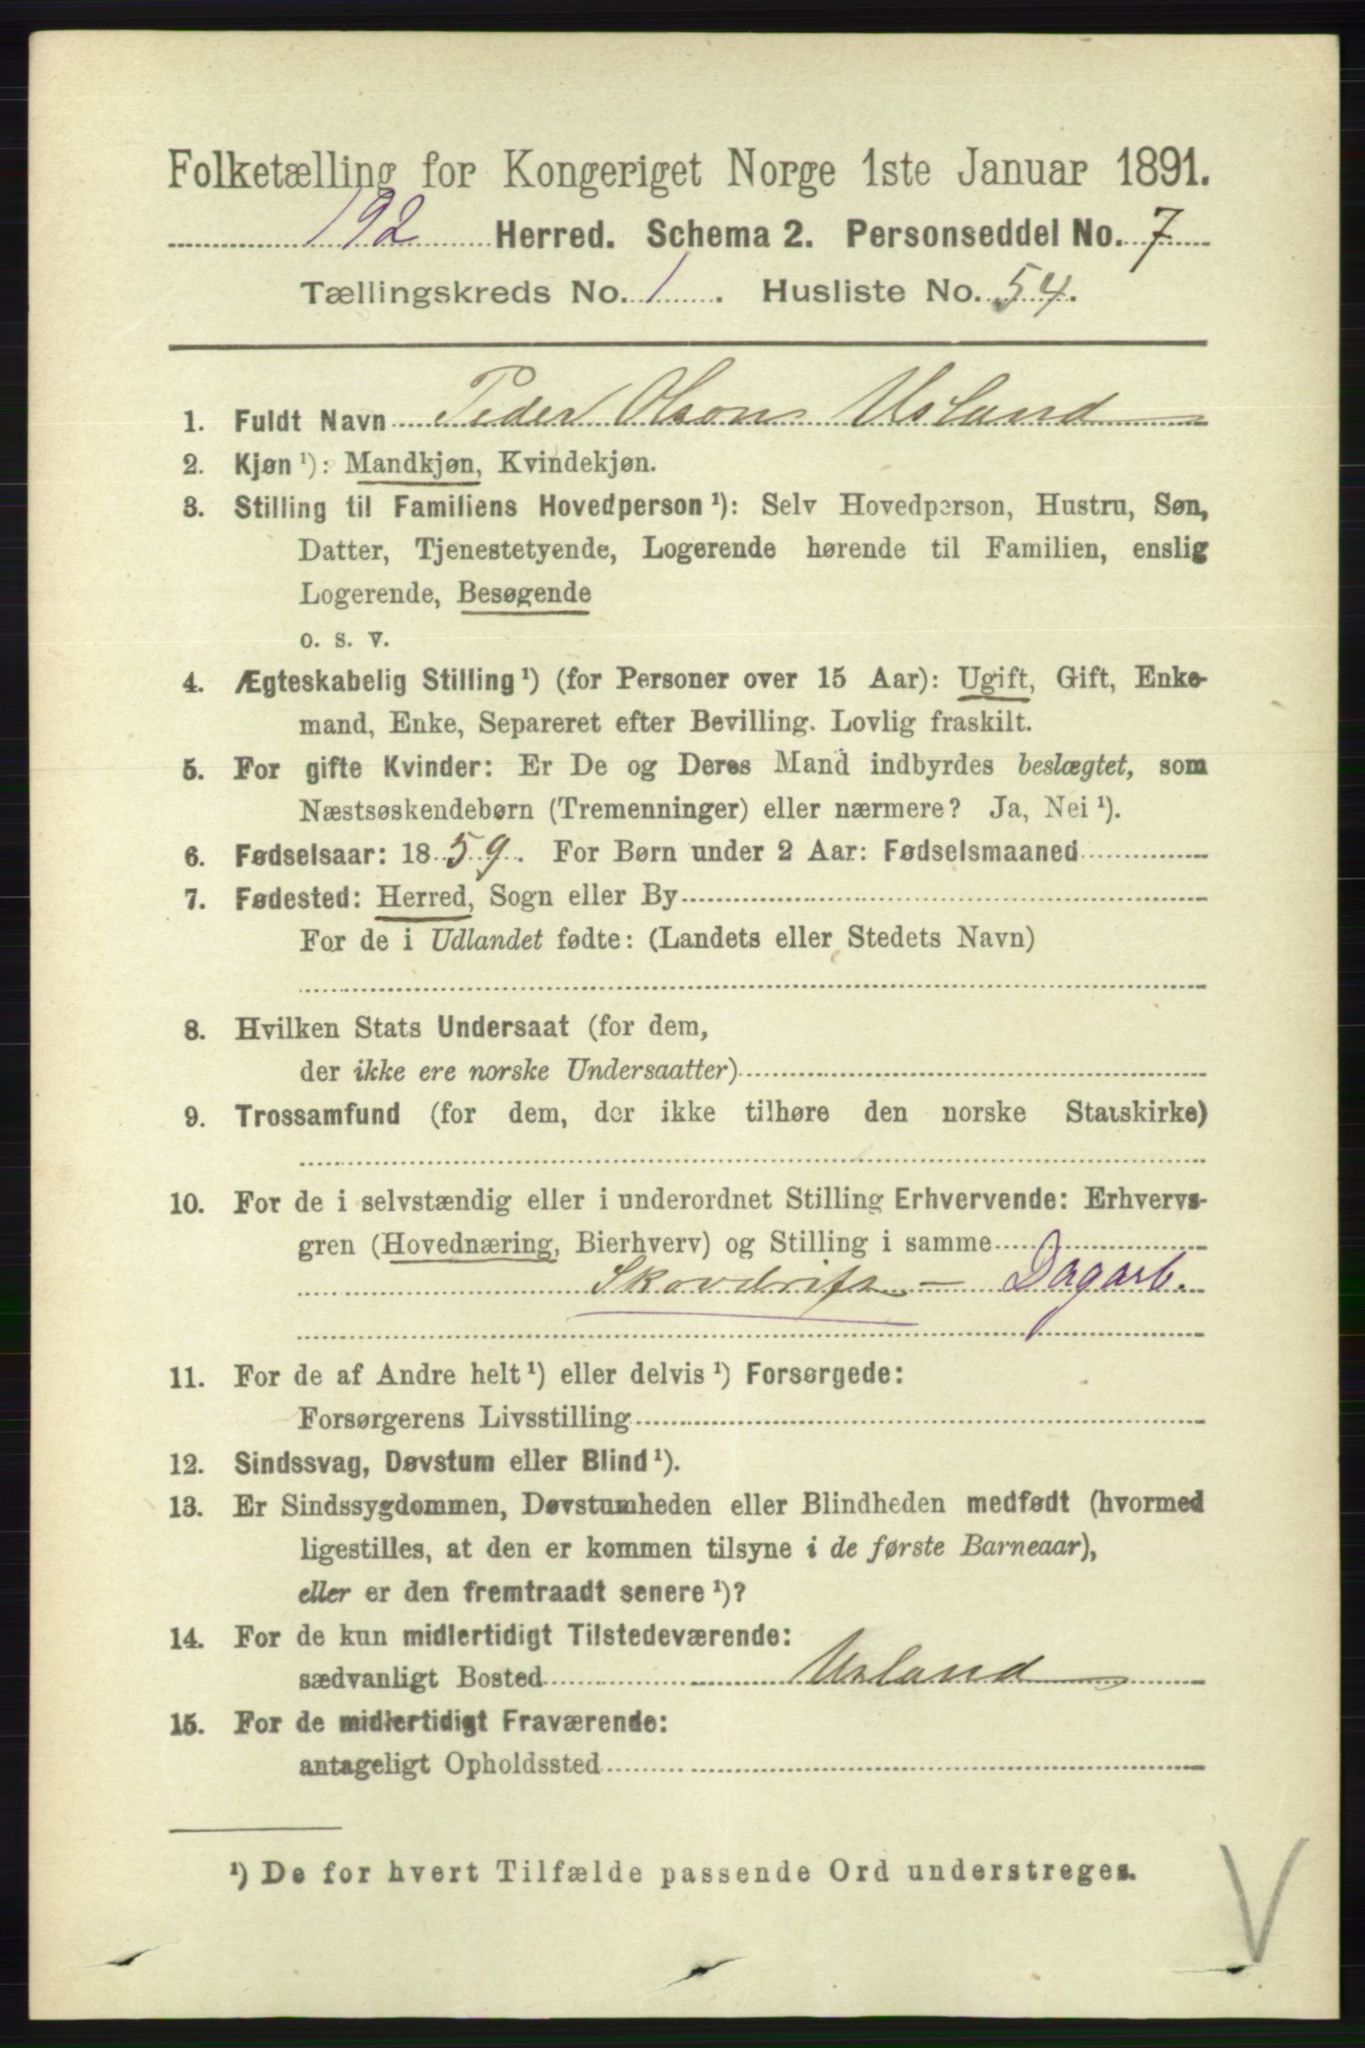 Folketælling for Kongeriget Norge 1ste Januar 1891.
192 Herred. Schema 2. Personseddel No. 7
Tællingskreds No. 1. Husliste No. 54.
1. Fuldt Navn Peder Olson Usland
2. Kjøn ¹): Mandkjøn, Kvindekjøn.
3. Stilling til Familiens Hovedperson ¹): Selv Hovedperson, Hustru, Søn,
Datter, Tjenestetyende, Logerende hørende til Familien, enslig
Logerende, Besøgende
o. s. v.
4. Ægteskabelig Stilling ¹) (for Personer over 15 Aar): Ugift, Gift, Enke-
mand, Enke, Separeret efter Bevilling. Lovlig fraskilt.
5. For gifte Kvinder: Er De og Deres Mand indbyrdes beslægtet, som
Næstsøskendebørn (Tremenninger) eller nærmere? Ja, Nei ¹).
6. Fødselsaar: 1859. For Børn under 2 Aar: Fødselsmaaned
7. Fødested: Herred, Sogn eller By
For de i Udlandet fødte: (Landets eller Stedets Navn)
8. Hvilken Stats Undersaat (for dem,
der ikke ere norske Undersaatter)
9. Trossamfund (for dem, der ikke tilhøre den norske Statskirke)
10. For de i selvstændig eller i underordnet Stilling Erhvervende: Erhvervs-
gren (Hovednæring, Bierhverv) og Stilling i samme
Skovdrift — Dagarb.
11. For de af Andre helt ¹) eller delvis ¹) Forsørgede:
Forsørgerens Livsstilling
12. Sindssvag, Døvstum eller Blind ¹).
13. Er Sindssygdommen, Døvstumheden eller Blindheden medfødt (hvormed
ligestilles, at den er kommen tilsyne i de første Barneaar),
eller er den fremtraadt senere ¹)?
14. For de kun midlertidigt Tilstedeværende:
sædvanligt Bosted Usland
15. For de midlertidigt Fraværende:
antageligt Opholdssted
¹) De for hvert Tilfælde passende Ord understreges.
V